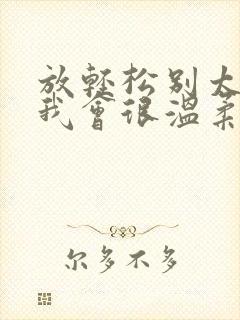 放轻松别太
我会很温柔
尔多不多